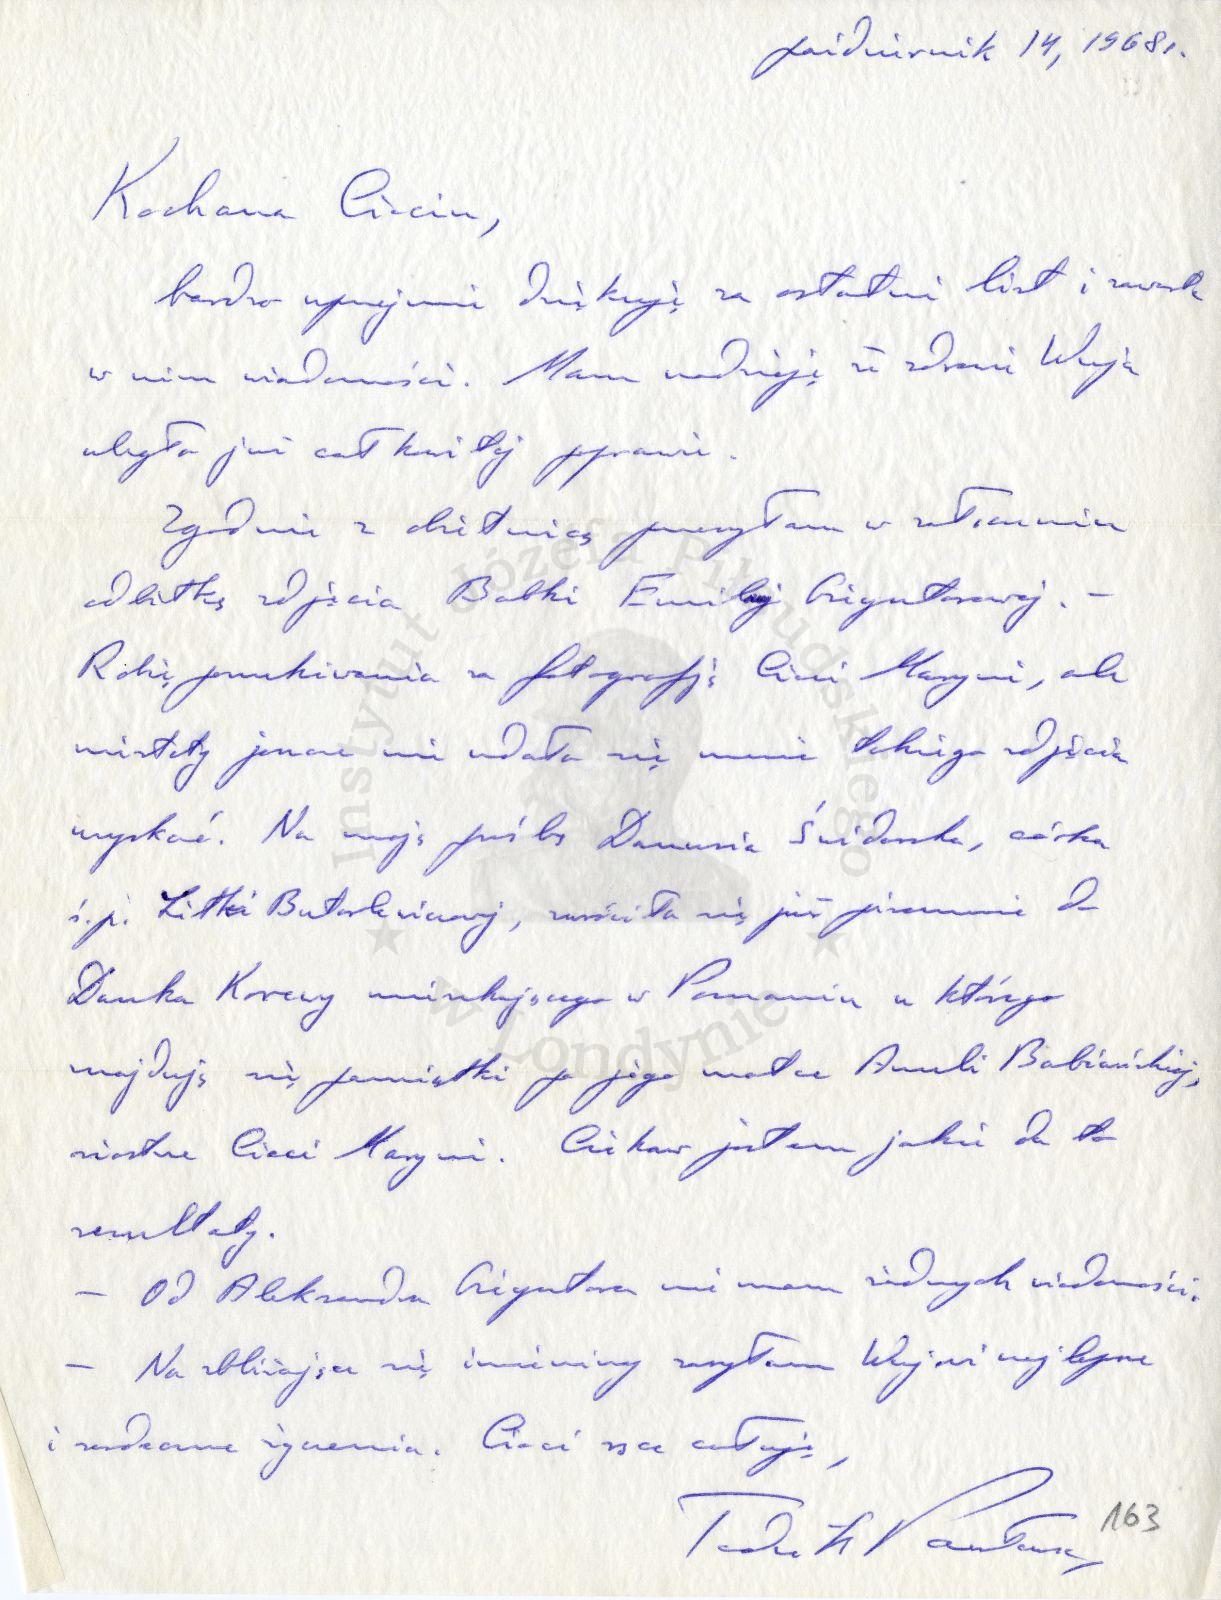 październik 14, 1968 r.
Kochana Ciociu,
bardzo uprzejmie dziękuję za ostatni list i zawarte
w nim wiadomości. Mam nadzieję że zdrowie Wuja
uległo już całkowitej poprawie.
Zgodnie z obietnicą przesyłam w załączeniu
odbitkę zdjęcia Babki Emilii
Robię poszukiwania za fotografją Cioci Maryni, ale
niestety jeszcze nie udało się mnie takiego zdjęcia
uzyskać. Na moją prośbę Danusia Świderska, córka
ś.p. Litki, zwróciła się już pisemnie do
Danka Korewy mieszkającego w Poznaniu u którego
znajdują się pamiątki po jego matce Anuli Babiańskiej,
siostrze Cioci Maryni. Ciekaw jestem jakie da to
rezultaty.
- Od Aleksandra nie mam żadnych wiadomości.
- Na zbliżające się imieniny zasyłam Wujowi najlepsze
i serdeczne życzenia. Cioci rące całuję,
163
Instytut Józefa Piłsudskiego
w Londynie